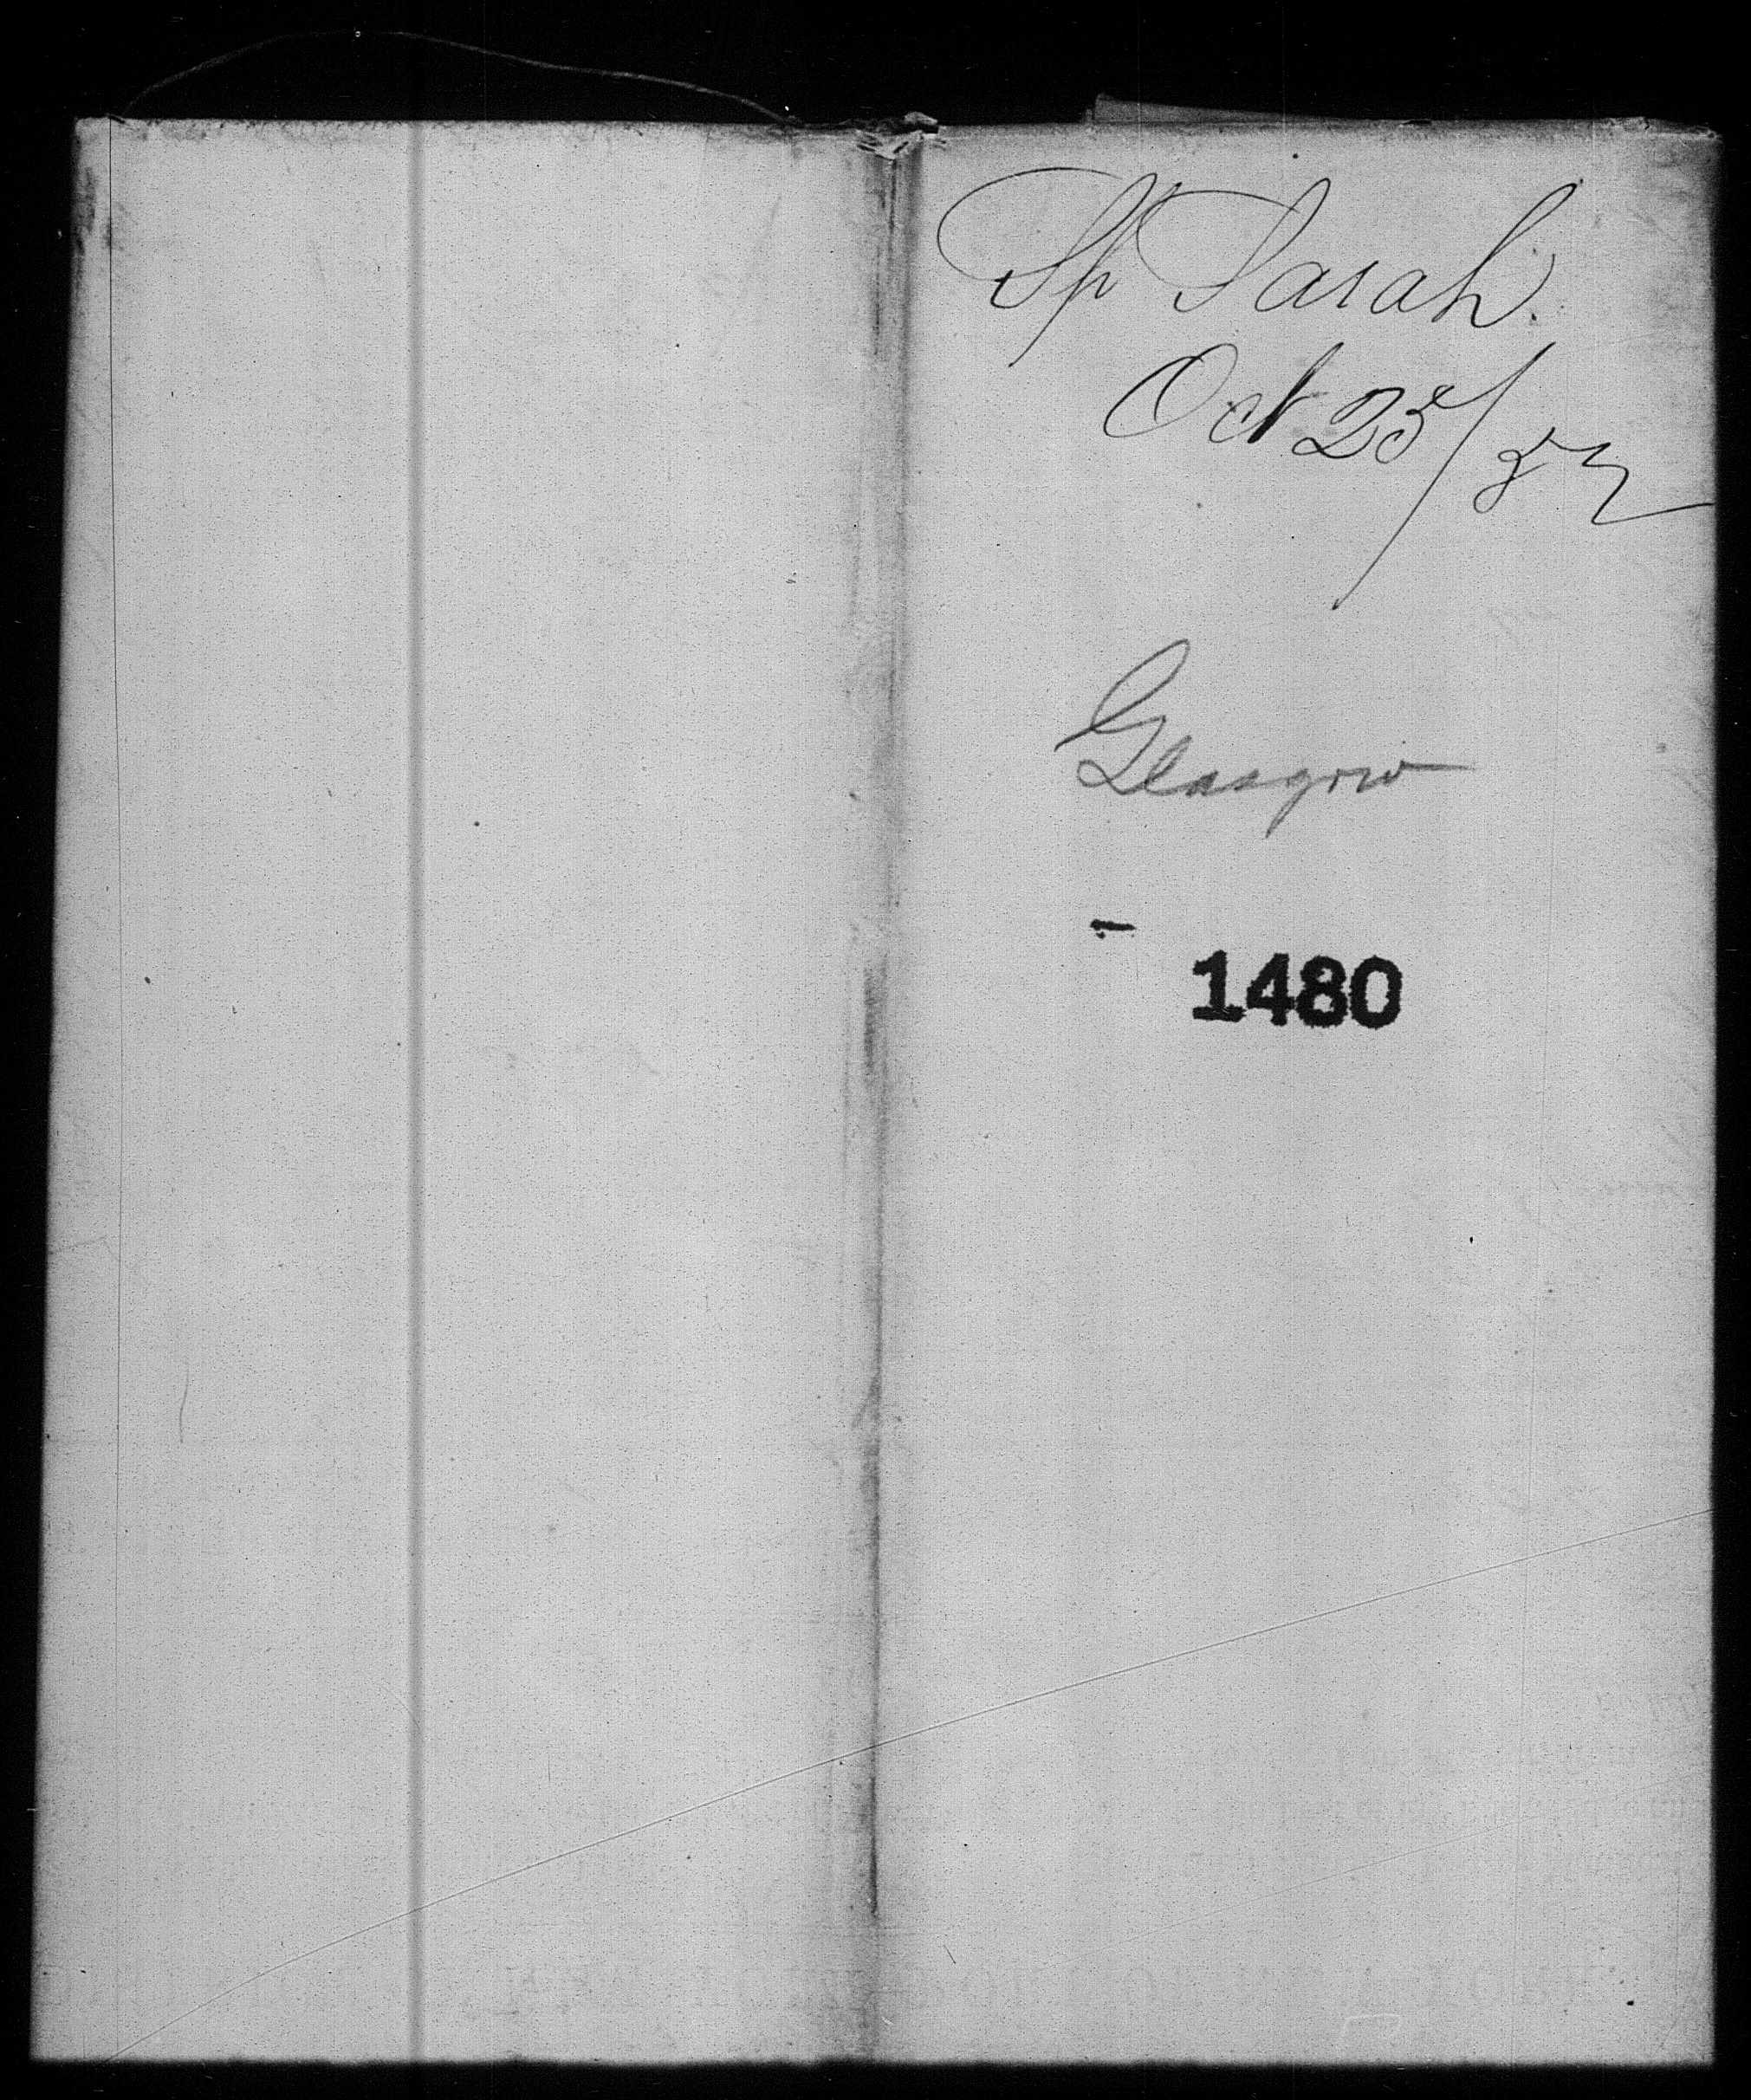 Sp Sarah.
Oct 25/52
Glasgow
1480